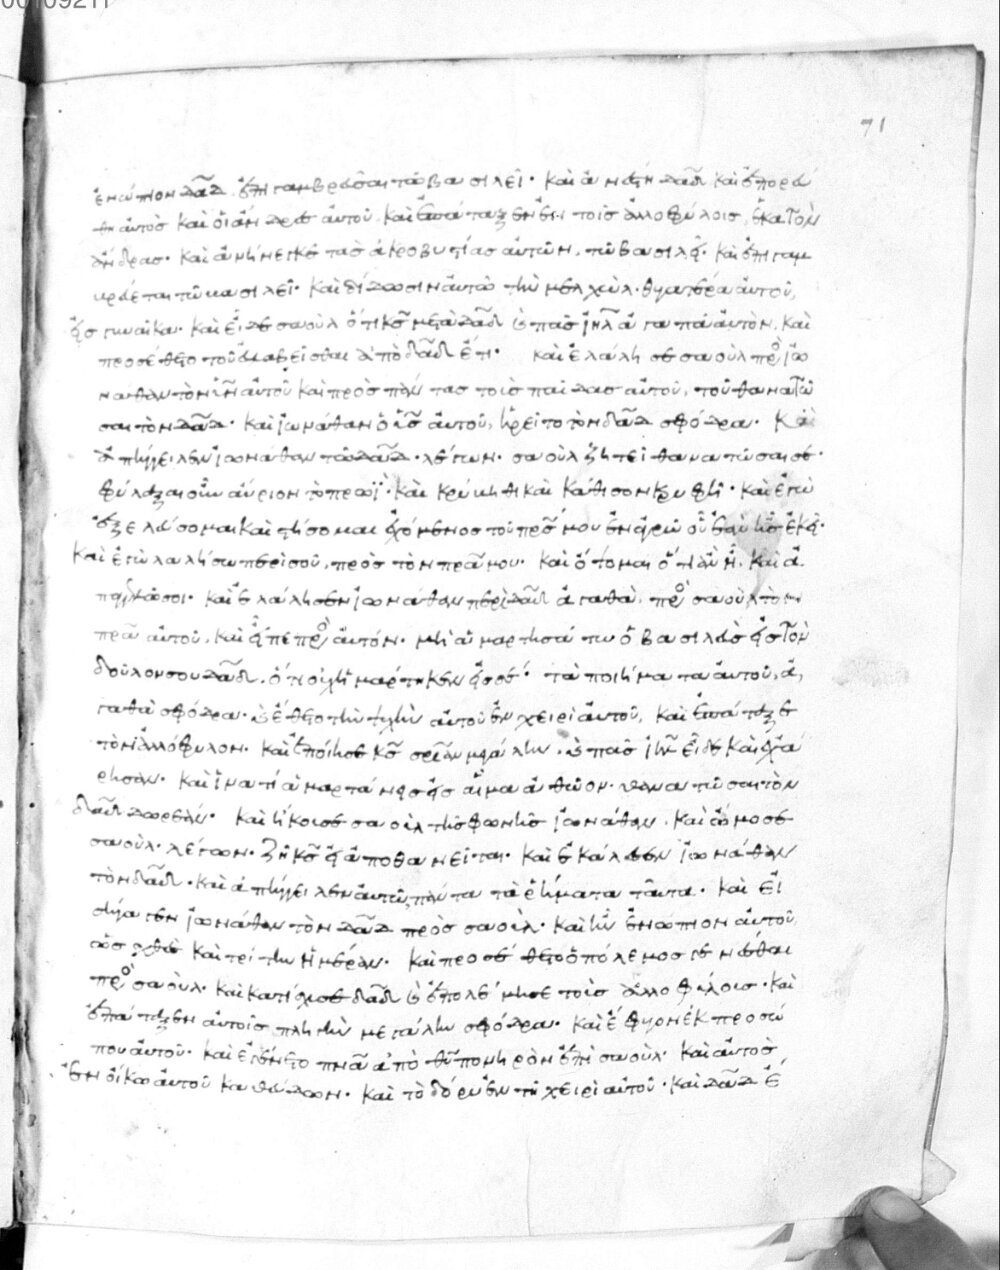 71
ἐνώπιον δα̅δ̅ ἐπιγαμβρεῦσαι τῷ βασιλεῖ· καὶ ἀνέστη δα̅δ̅ καὶ ἐπορεύ
θη αὐτὸς καὶ οἱ ἄνδρες αὐτοῦ· καὶ ἐπάταξεν ἐν τοῖς ἀλλοφύλοις, ἑκατὸν
ἄνδρας· καὶ ἀνήνεγκε τὰς ἀκροβυστίας αὐτῶν, τῷ βασιλεῖ· καὶ ἐπιγαμ
βρεύεται τῷ βασιλεῖ· καὶ δίδωσιν αὐτῷ τὴν μελχὼλ θυγατέρα αὐτοῦ,
εἰς γυναῖκα· καὶ εἶδε σαοὺλ ὅτι κ̅ς̅ μετὰ δα̅δ̅ καὶ πᾶς ι̅η̅λ̅ ἀγαπᾷ αὐτὸν, καὶ
προσέθετο τοῦ εὐλαβεῖσθαι ἀπὸ δα̅δ̅ ἔτι· καὶ ἐλάλησε σαοὺλ πρὸς ἰω
νάθαν τὸν υ̅ν̅ αὐτοῦ καὶ πρὸς πάντας τοὺς παῖδας αὐτοῦ, τοῦ θανατῶ
σαι τὸν δα̅δ̅· καὶ ἰωνάθαν ὁ υ̅ς̅ αὐτοῦ, ᾑρεῖτο τὸν δα̅δ̅ σφόδρα· καὶ
ἀπήγγειλεν ἰωνάθαν τῷ δα̅δ̅ λέγων· σαοὺλ ζητεῖ θανατῶσαι σέ·
φύλαξαι οὖν αὔριον τὸ πρωῒ· καὶ κρύβηθι καὶ κάθισον κρυφῇ· καὶ ἐγὼ
ἐξελεύσομαι καὶ στήσομαι ἐχόμενος τοῦ π̅ρ̅ς̅ μου ἐν ἀγρῷ οὗ ἐὰν ᾖς ἐκεῖ·
καὶ ἐγὼ λαλήσω περὶ σοῦ, πρὸς τὸν π̅ρ̅α̅ μου· καὶ ὄψομαι ὅτι ἐὰν ᾖ, καὶ ἀ
παγγελῶ σοι· καὶ ἐλάλησεν ἰωνάθαν περὶ δα̅δ̅ ἀγαθὰ, πρὸς σαοὺλ τὸν
π̅ρ̅α̅ αὐτοῦ, καὶ εἶπε πρὸς αὐτόν· μὴ ἁμαρτησάτω ὁ βασιλεὺς εἰς τὸν
δοῦλον σου δα̅δ̅, ὅτι οὐχ ἡμάρτηκεν εἰς σέ· τὰ ποιήματα αὐτοῦ, ἀ
γαθὰ σφόδρα· καὶ ἔθετο τὴν ψυχὴν αὐτοῦ ἐν χειρὶ αὐτοῦ, καὶ ἐπάταξε
τὸν ἀλλόφυλον· καὶ ἐποίησε κ̅ς̅ σ̅ρ̅ι̅α̅ν̅ μεγάλην, καὶ πᾶς ι̅η̅λ̅ εἶδε καὶ ἐχά
ρησαν· καὶ ἵνα τί ἁμαρτάνεις εἰς αἷμα ἀθῶον· θανατῶσαι τὸν
δα̅δ̅ δωρεάν· καὶ ἤκουσε σαοὺλ τῆς φωνῆς ἰωνάθαν, καὶ ὤμοσε
σαοὺλ λέγων· ζῇ κ̅ς̅ εἰ ἀποθανεῖται· καὶ ἐκάλεσεν ἰωνάθαν
τὸν δα̅δ̅· καὶ ἀπήγγειλεν αὐτῷ πάντα τὰ ῥήματα ταῦτα· καὶ εἰ
σήγαγεν ἰωνάθαν τὸν δα̅δ̅ πρὸς σαοὺλ· καὶ ἦν ἐνώπιον αὐτοῦ,
ὡς χθὲς καὶ τρίτην ἡμέραν· καὶ προσέθετο ὁ πόλεμος γενέσθαι
πρὸς σαοὺλ· καὶ κατίσχυσε δα̅δ̅ καὶ ἐπολέμησε τοῖς ἀλλοφύλοις· καὶ
ἐπάταξεν αὐτοὺς πληγὴν μεγάλην σφόδρα· καὶ ἔφυγον ἐκ προσώ
που αὐτοῦ· καὶ ἐγένετο π̅ν̅α̅ ἀπὸ θ̅υ̅ πονηρὸν ἐπὶ σαοὺλ· καὶ αὐτὸς,
ἐν οἴκῳ αὐτοῦ καθεύδων· καὶ τὸ δόρυ ἐν τῇ χειρὶ αὐτοῦ· καὶ δα̅δ̅ ἔ